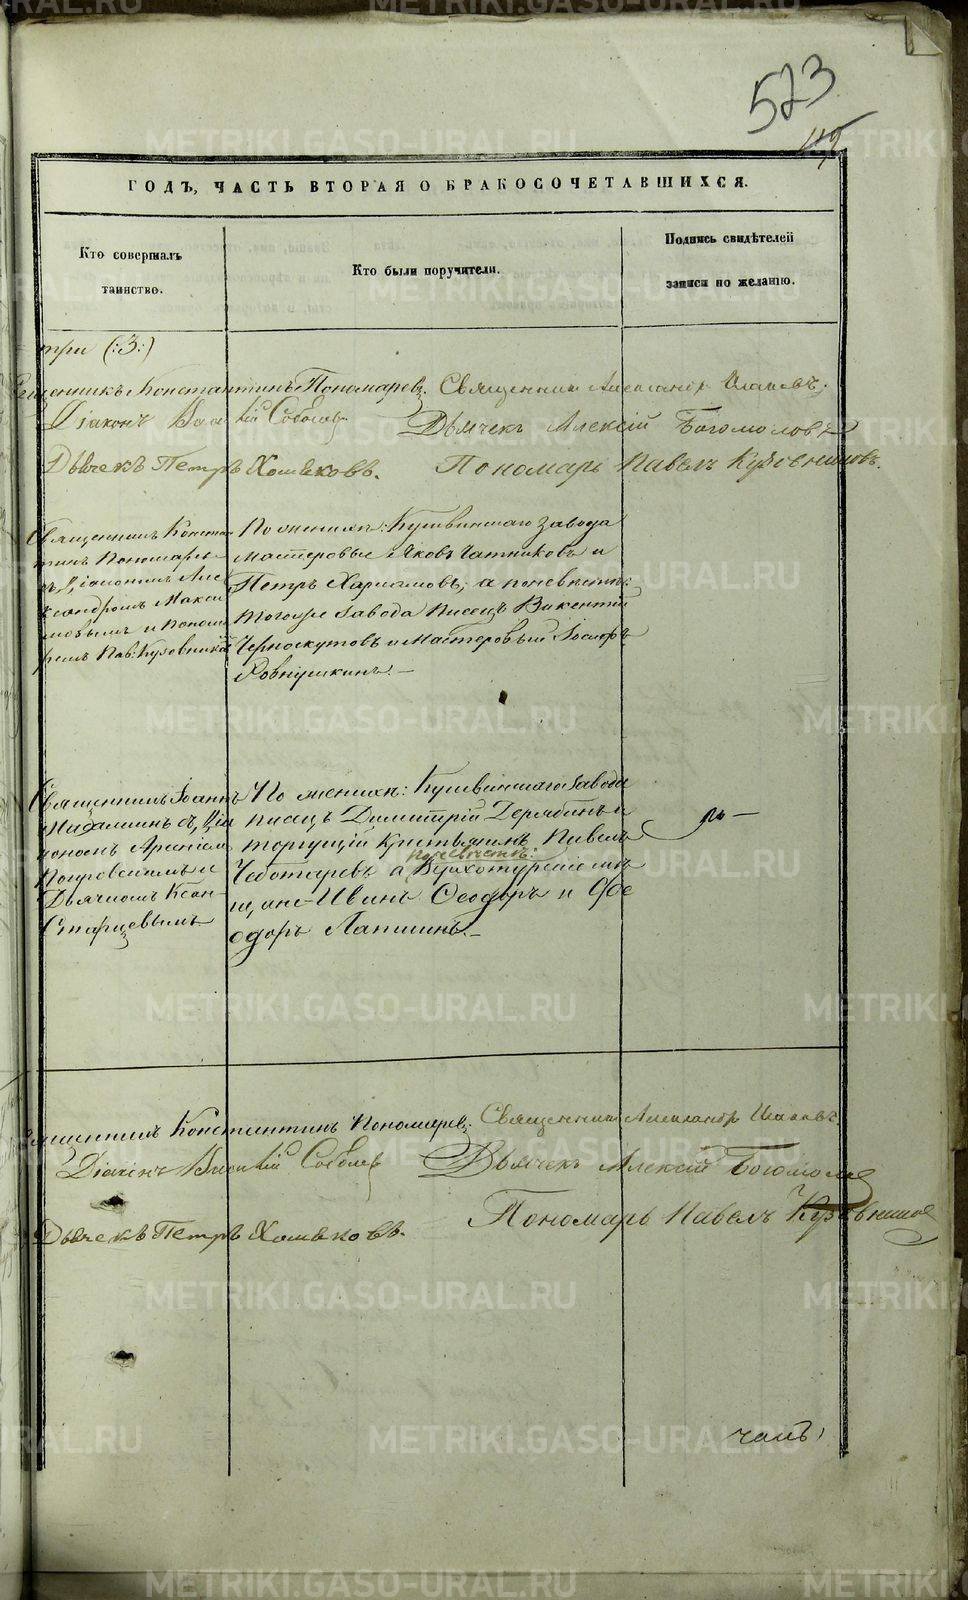 523
ГОДЪ, ЧАСТЬ ВТОРАЯ О БРАКОСОЧЕТАВШИХСЯ.
Кто совершалъ
таинство.
Кто были поручители.
Подпись свидѣтелей
записи по желанію.
три (:3:)
Священникъ Константинъ Пономаревъ. Священникъ Александръ
Діаконъ Василій Соболевъ Дьячекъ Алексій Богомоловъ
Дьячекъ Петръ Хомяковъ. Пономарь Павелъ Кузовниковъ.
Священникъ Конста-
нтинъ Пономаре-
въ, Діакономъ Але
ксандромъ Макси
мовымъ и Понома
ремъ Пав: Кузовников
По женихѣ: Кушвинскаго завода
мастеровые Яковъ и
Петръ Харламовъ; а по невѣстѣ:
тогоже завода писецъ Викентій
Черноскутовъ и мастеровый Іосифъ
Священникъ Іоаннъ
съ, Діа
кономъ Арсеніемъ
Попровскимъ и
Дьячкомъ Ксен.
Старцевымъ
По женихѣ: Кушвинскаго завода
писецъ Димитрій Дерябинъ и
торгующій крестьянинъ Павелъ
по невѣстѣ:
Чеботаревъ а Верхотурскіе мѣ
щане Иванъ Ѳеодоръ и Ѳе
одоръ Лапшинъ.
Священникъ Константинъ Пономаревъ. Священникъ Александръ
Діаконъ Василій Соболев Дьячекъ Алексій Богомолов
Дьячекъ Петръ Хомяковъ. Пономарь Павелъ Кузовников
METRIKI.GASO-URAL.RU